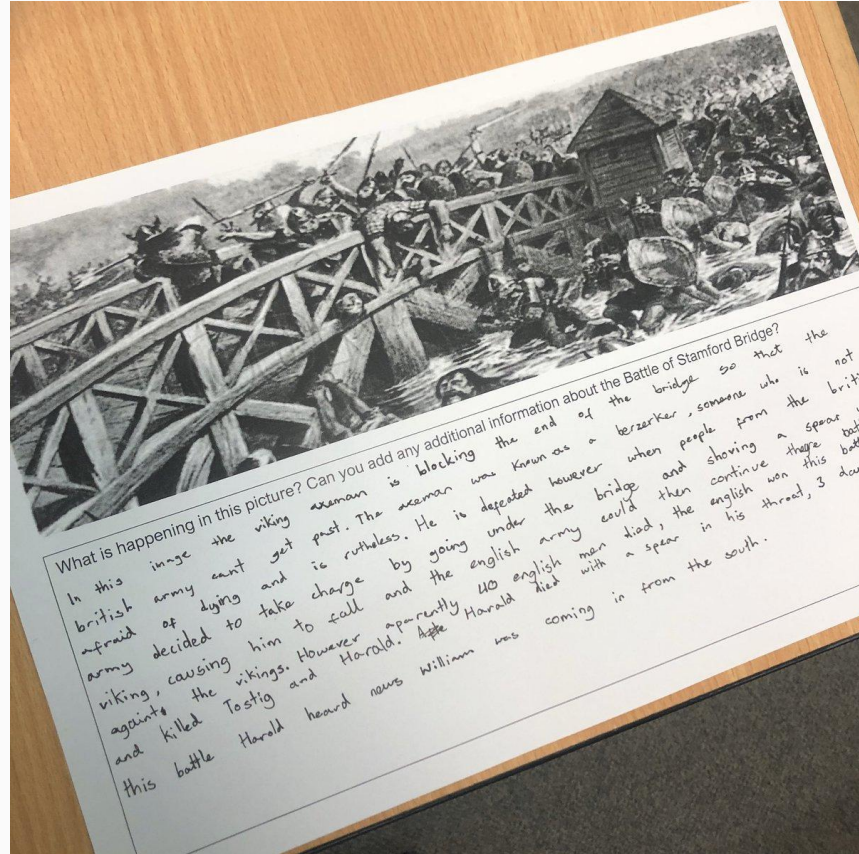 What is happening in this picture? Can you add any additional information about the Battle of Stamford Bridge?
In this image the viking axeman is blocking the end of the bridge so that the
british army cant get past. The axeman was known as a berzerker, someone who is not
afraid of dying and is ruthless. He is defeated however when people from the
army decided to take charge by going under the bridge and shoving a spear
viking, causing him to fall and the english army could then continue there
againts the vikings. However aparently 40 english men died, the english won this
and killed Tostig and Harald. Harald died with a spear in his throat, 3
this battle Harold heard news William was coming in from the south.